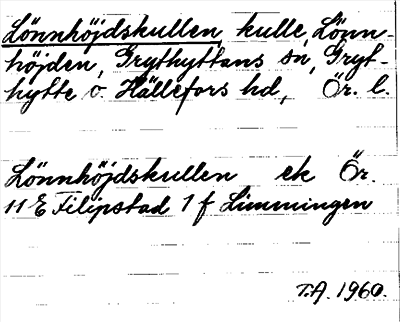 Lönnhöjdskullen, kulle, Lönn-
höjden, Grythyttans sn, Gryt-
hytte o. Hällefors hd, Ör. l.
Lönnhöjdskullen ek Ör.
11 E Filipstad 1 f Limmingen
T.A. 1960.